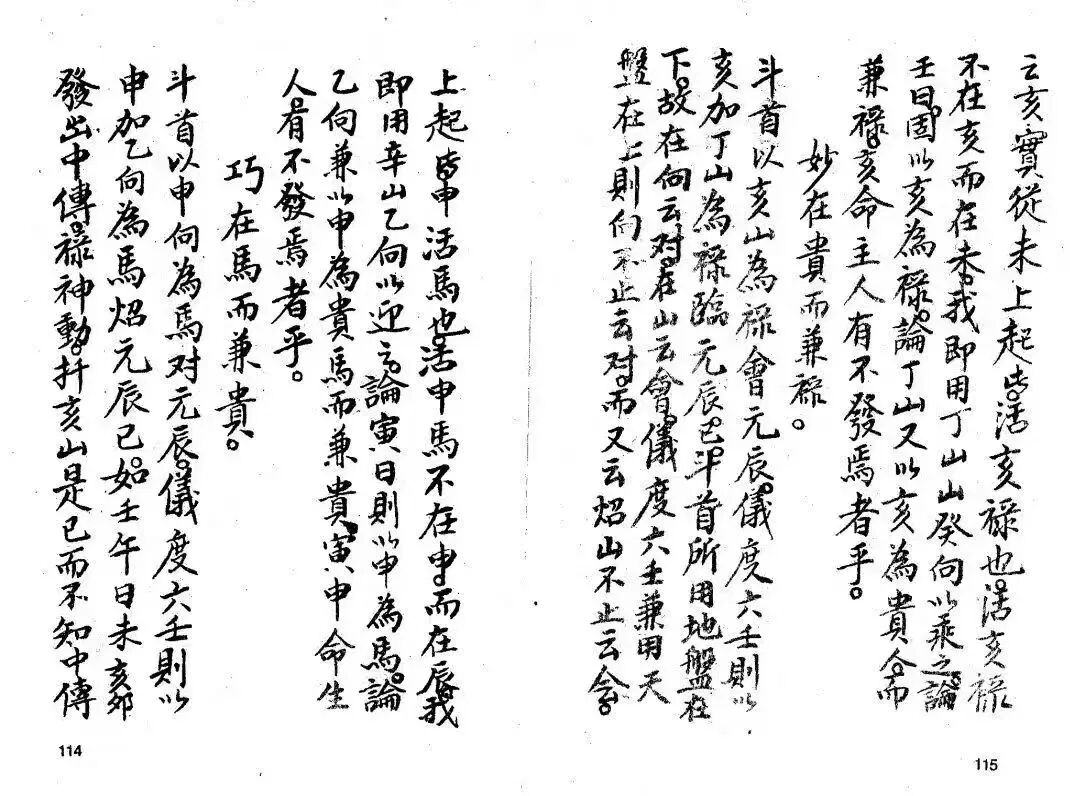 云亥實從未上起此活亥禄也。活亥禄
不在亥而在未。我即用丁山癸向以乘之。論
壬日固以亥為禄。論丁山又以亥為貴人。而
兼禄。亥命主人有不發焉者乎。
妙在貴而兼禄。
斗首以亥山為禄會元辰。儀度六壬則以
亥加丁山為禄臨元辰巳。斗首所用地盤在
下。故在向云对。在山云會。儀度六壬兼用天
盤在上則向不止云对。而又云炤山不止云會。
115
上起皆申活馬也。活申馬不在申。而在辰。我
即用辛山乙向以迎之。論寅日則以申為馬。論
乙向兼以申為貴馬而兼貴。寅申命生
人。有不發焉者乎。
巧在馬而兼貴。
斗首以申向為馬对元辰。儀度六壬則以
申加乙向為馬炤元辰已。如壬午日未亥卯
發出中傳。禄神動。扦亥山是已而不知中傳
114